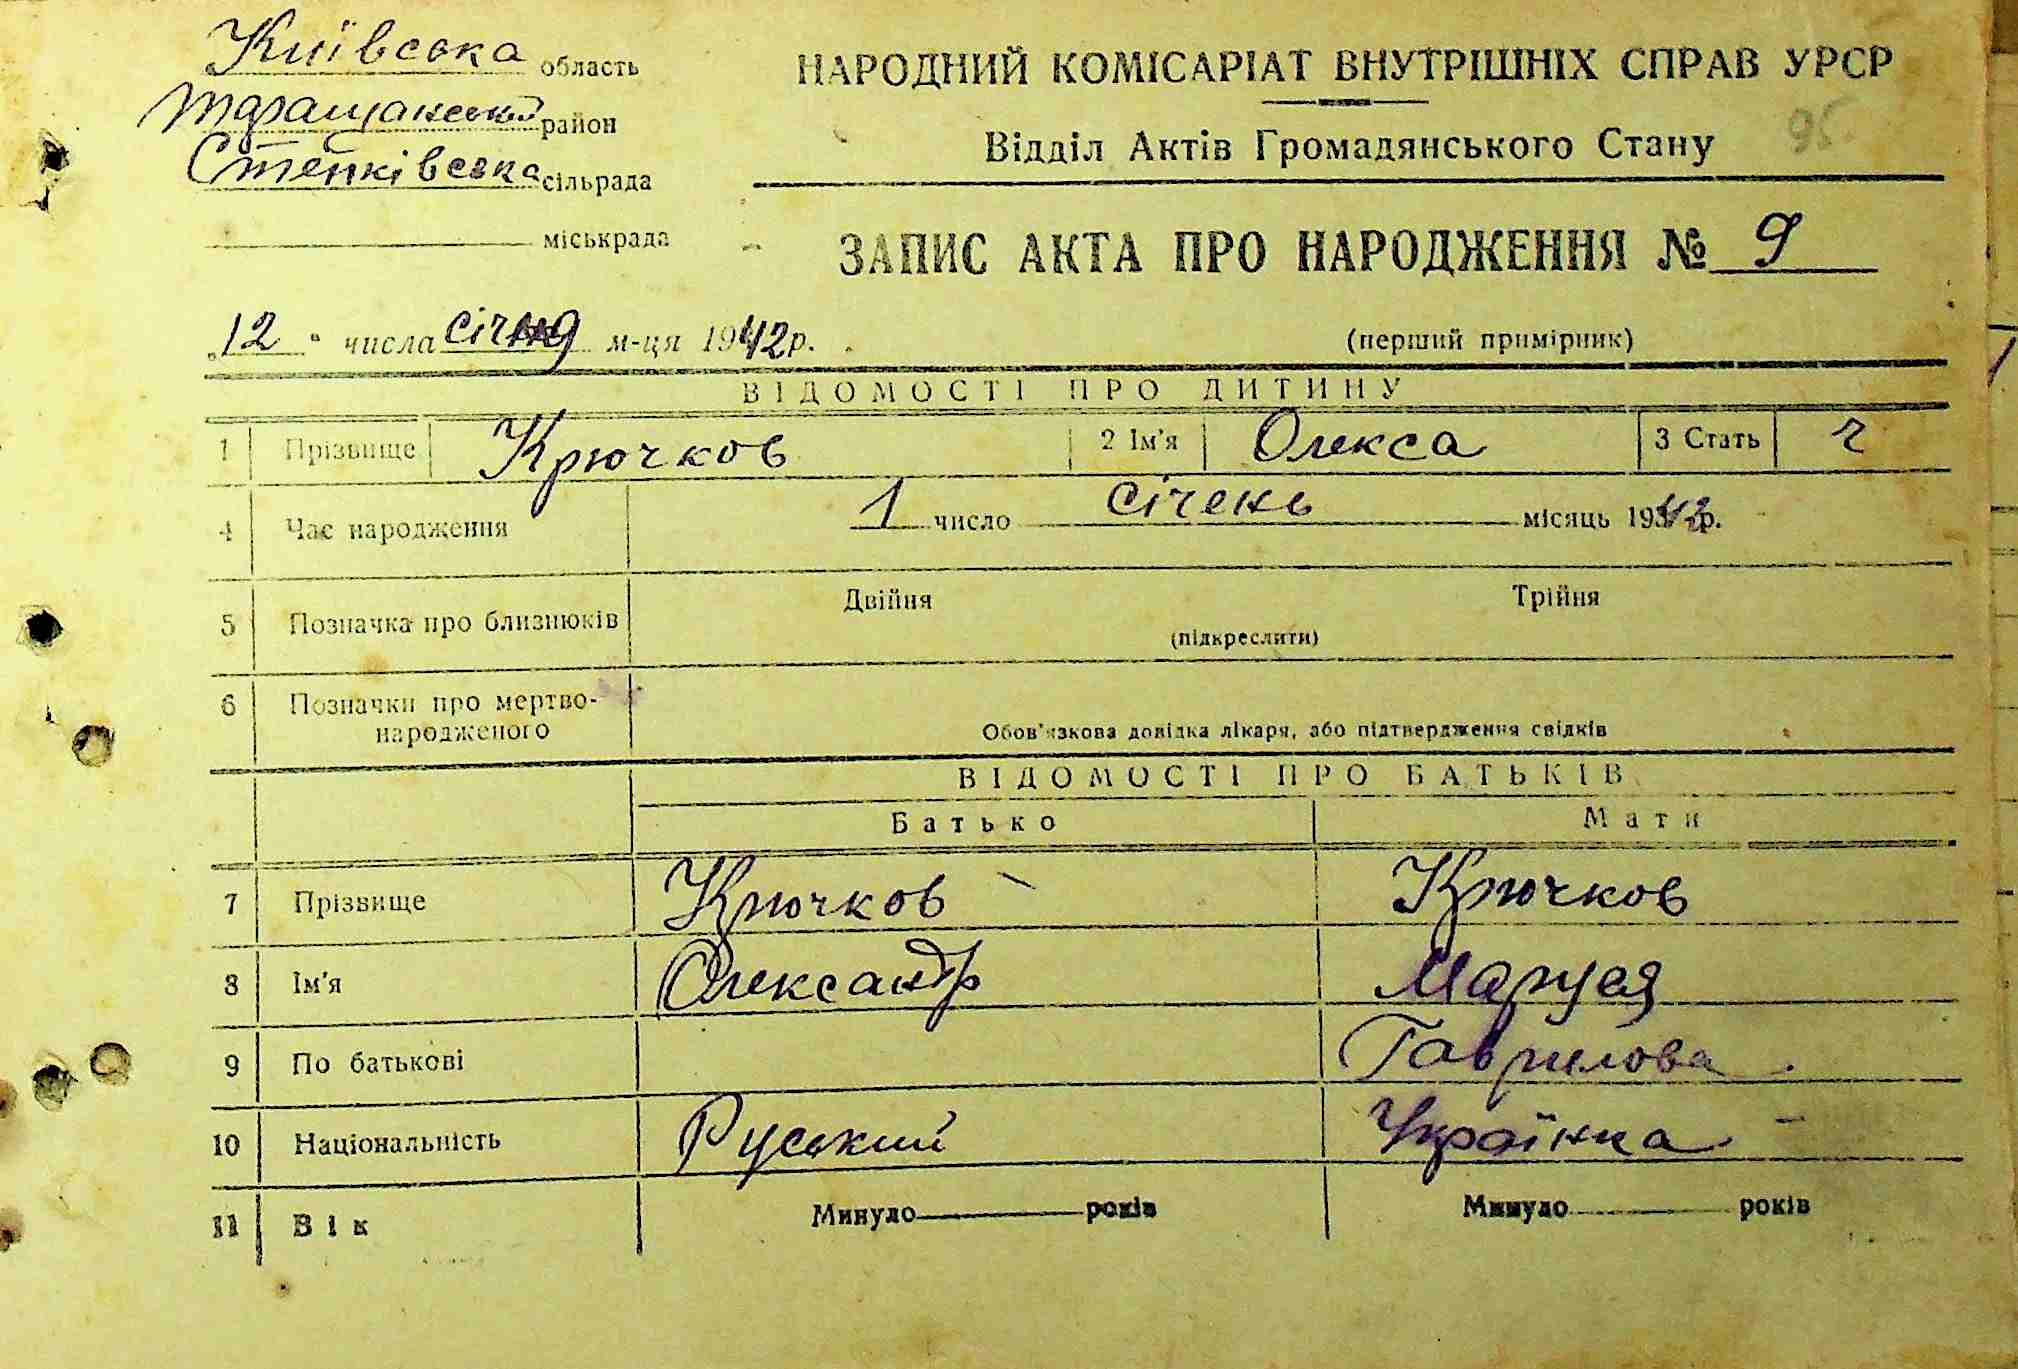 Київська область
Таращанський район
Степківська сільрада
міськрада
НАРОДНИЙ КОМІСАРІАТ ВНУТРІШНІХ СПРАВ УРСР
Відділ Актів Громадянського Стану
95
ЗАПИС АКТА ПРО НАРОДЖЕННЯ № 9
„12" числа січня м-ця 1942 р.
(перший примірник)
ВІДОМОСТІ ПРО ДИТИНУ
1 Прізвище Крючков 2 Ім'я Олекса 3 Стать ч
4 Час народження 1 число січень місяць 1942 р.
5 Позначка про близнюків Двійня Трійня
(підкреслити)
6 Позначки про мертво-
народженого
Обов'язкова довідка лікаря, або підтвердження свідків
ВІДОМОСТІ ПРО БАТЬКІВ
Батько Мати
7 Прізвище Крючков Крючков
8 Ім'я Олександр Маруся
9 По батькові Гаврилова
10 Національність Руський Українка
11 Вік Минуло років Минуло років